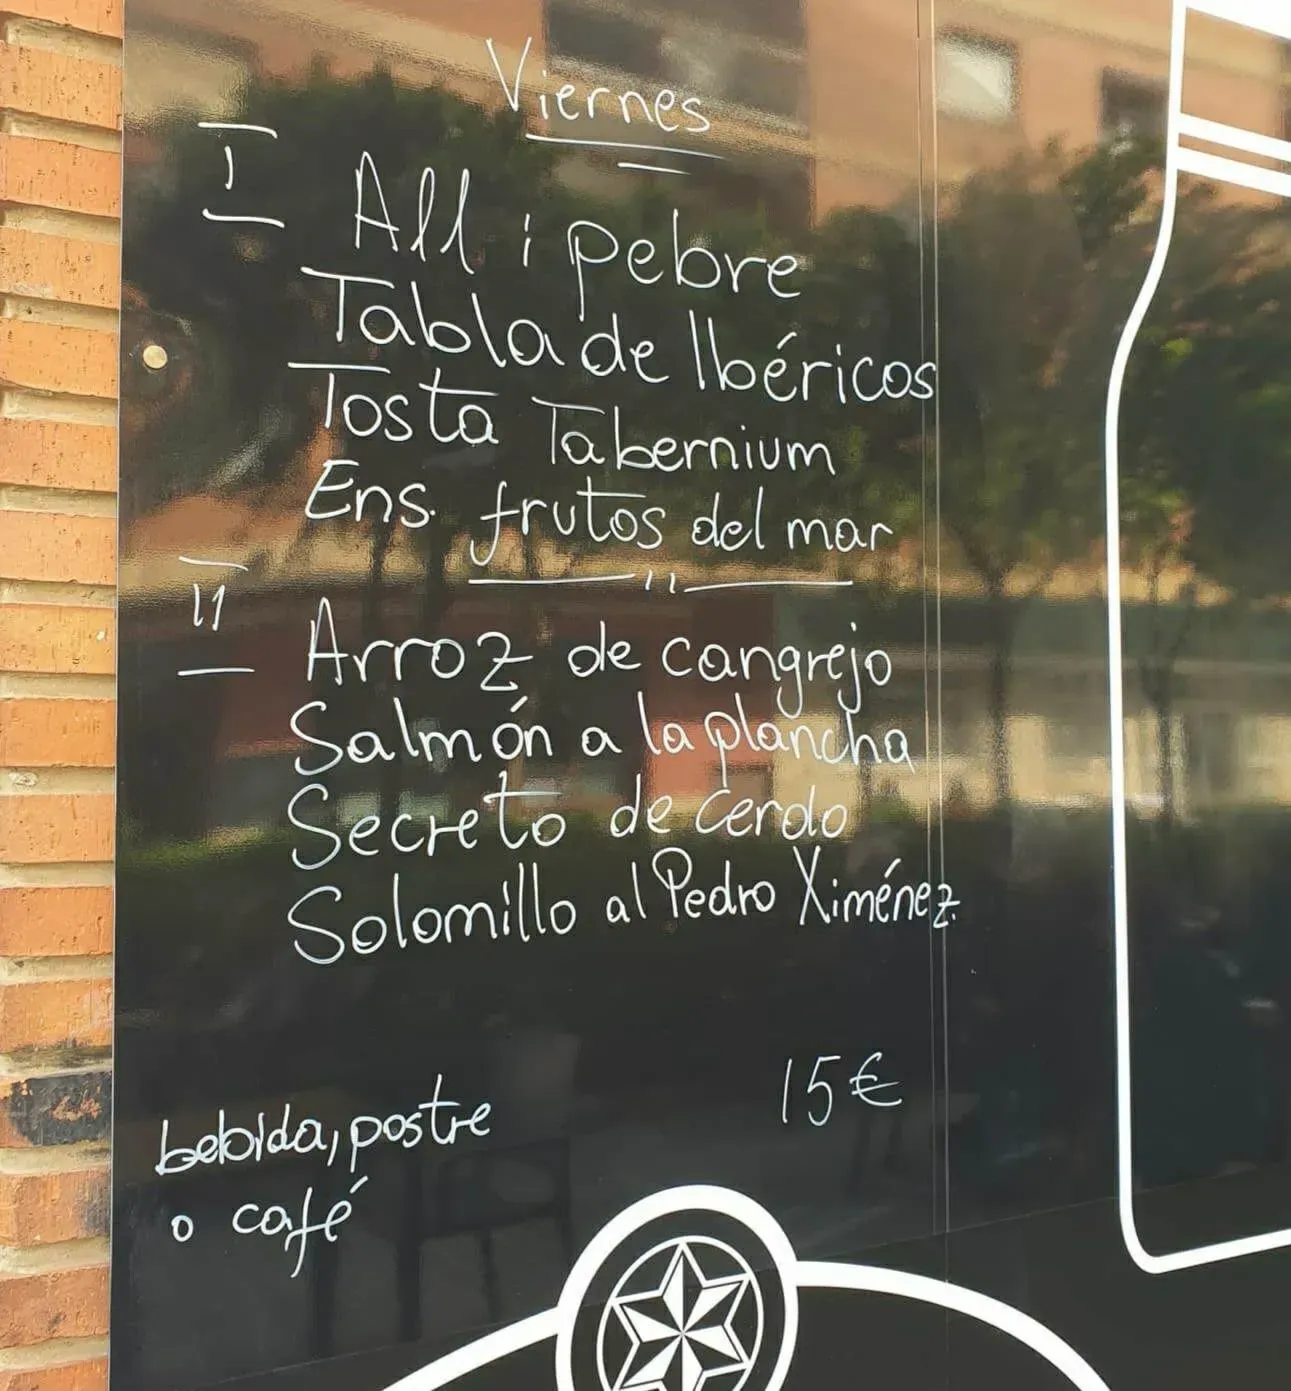 Viernes
I
All i pebre
Tabla de Ibéricos
Tosta Tabernium
Ens. frutos del mar
II
Arroz de cangrejo
Salmón a la plancha
Secreto de cerdo
Solomillo al Pedro Ximénez.
15€
bebida, postre
o café